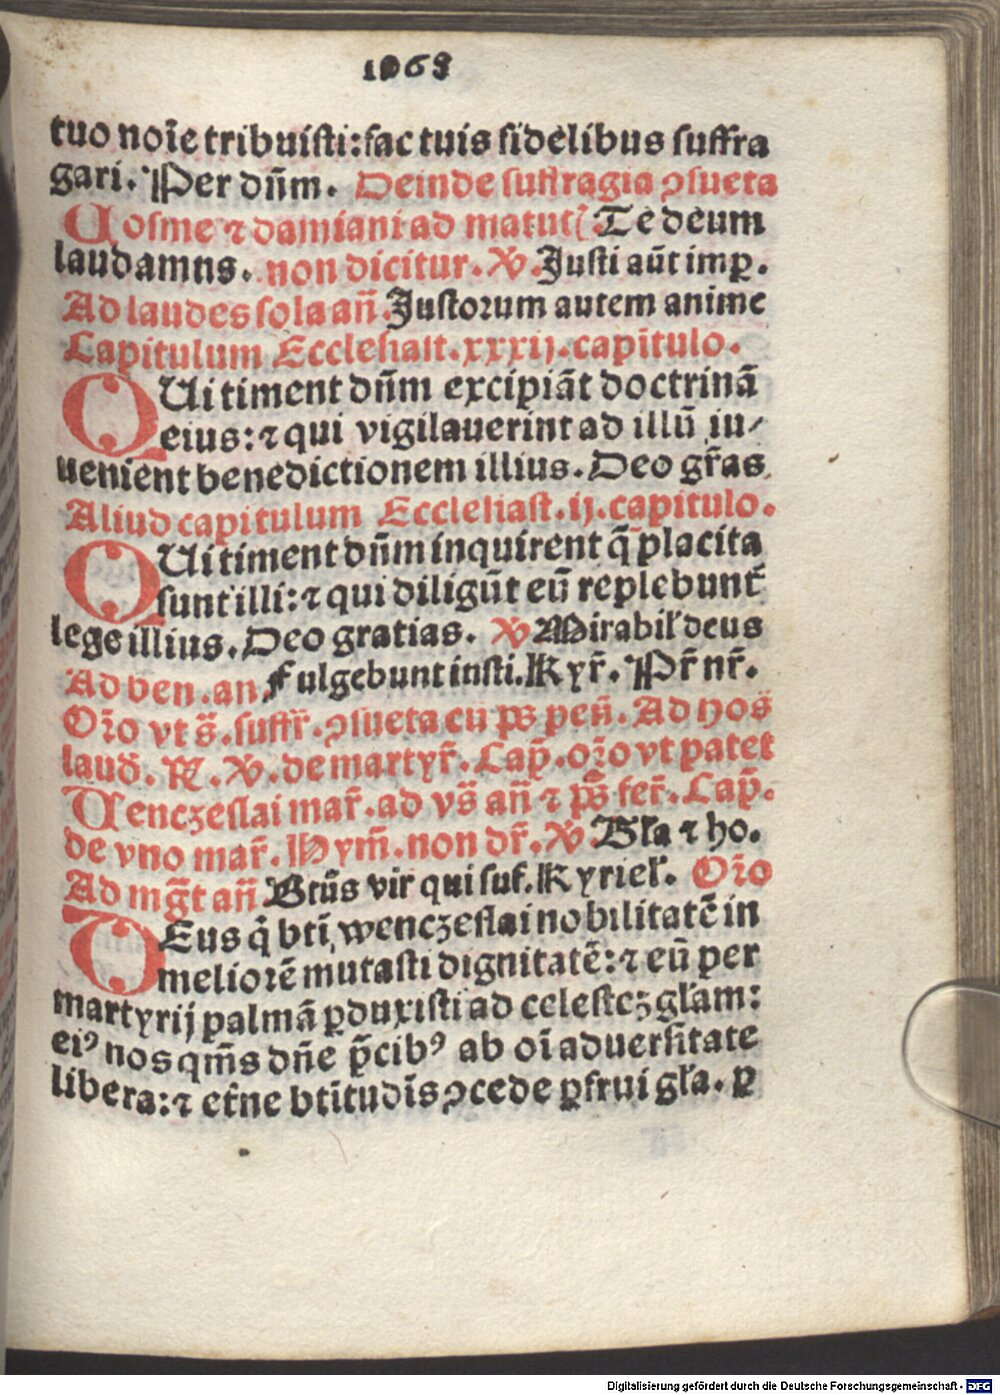 1063
tuo noi̅e tribuisti: fac tuis fidelibus suffra
gari. Per dn̅m. Deinde suffragia ꝯsueta
Cosme ⁊ damiani ad matut̅. Te deum
laudamus. non dicitur. ℣. Justi au̅t imꝑ.
Ad laudes sola an̅. Justorum autem anime
Capitulum Ecclesiast. xxxij. capitulo.
QUi timent dn̅m excipia̅t doctrina̅
eius: ⁊ qui vigilauerint ad illu̅ in⸗
uenient benedictionem illius. Deo gr̅as
Aliud capitulum Ecclesiast. ij. capitulo.
QUi timent dn̅m inquirent q̅ placita
sunt illi: ⁊ qui diligu̅t eu̅ replebunt̅
lege illius. Deo gratias. ℣ Mirabil' deus
Ad ben. an. Fulgebunt iusti. Kyr̅. Pr̅ nr̅.
Or̅o vt s̅. suffr̅. ꝯsueta cu̅ ps pen̅. Ad hos̅
laud̅. ℟. ℣. de martyr̅. Cap̅. or̅o vt patet
Wenczeslai mar̅. ad vs̅ an̅ ⁊ ps̅ fer̅. Cap̅.
de vno mar̅. Hym̅. non dr̅. ℣. Gl'a ⁊ ho.
Ad mg̅t an̅. Bt̅us vir qui suf. Kyriel'. Or̅o
DEus q̇ bti̅ wenczeslai nobilitate̅ in
meliore̅ mutasti dignitate̅: ⁊ eu̅ per
martyrij palma̅ ꝑduxisti ad celestez gl'am:
eiꝰ nos qm̅s dn̅e p̅cibꝰ ab oi̅ aduersitate
libera: ⁊ et̅ne bti̅tudi̅s ꝯcede ꝑfrui gl'a. ꝑ
Digitalisierung gefördert durch die Deutsche Forschungsgemeinschaft - DFG